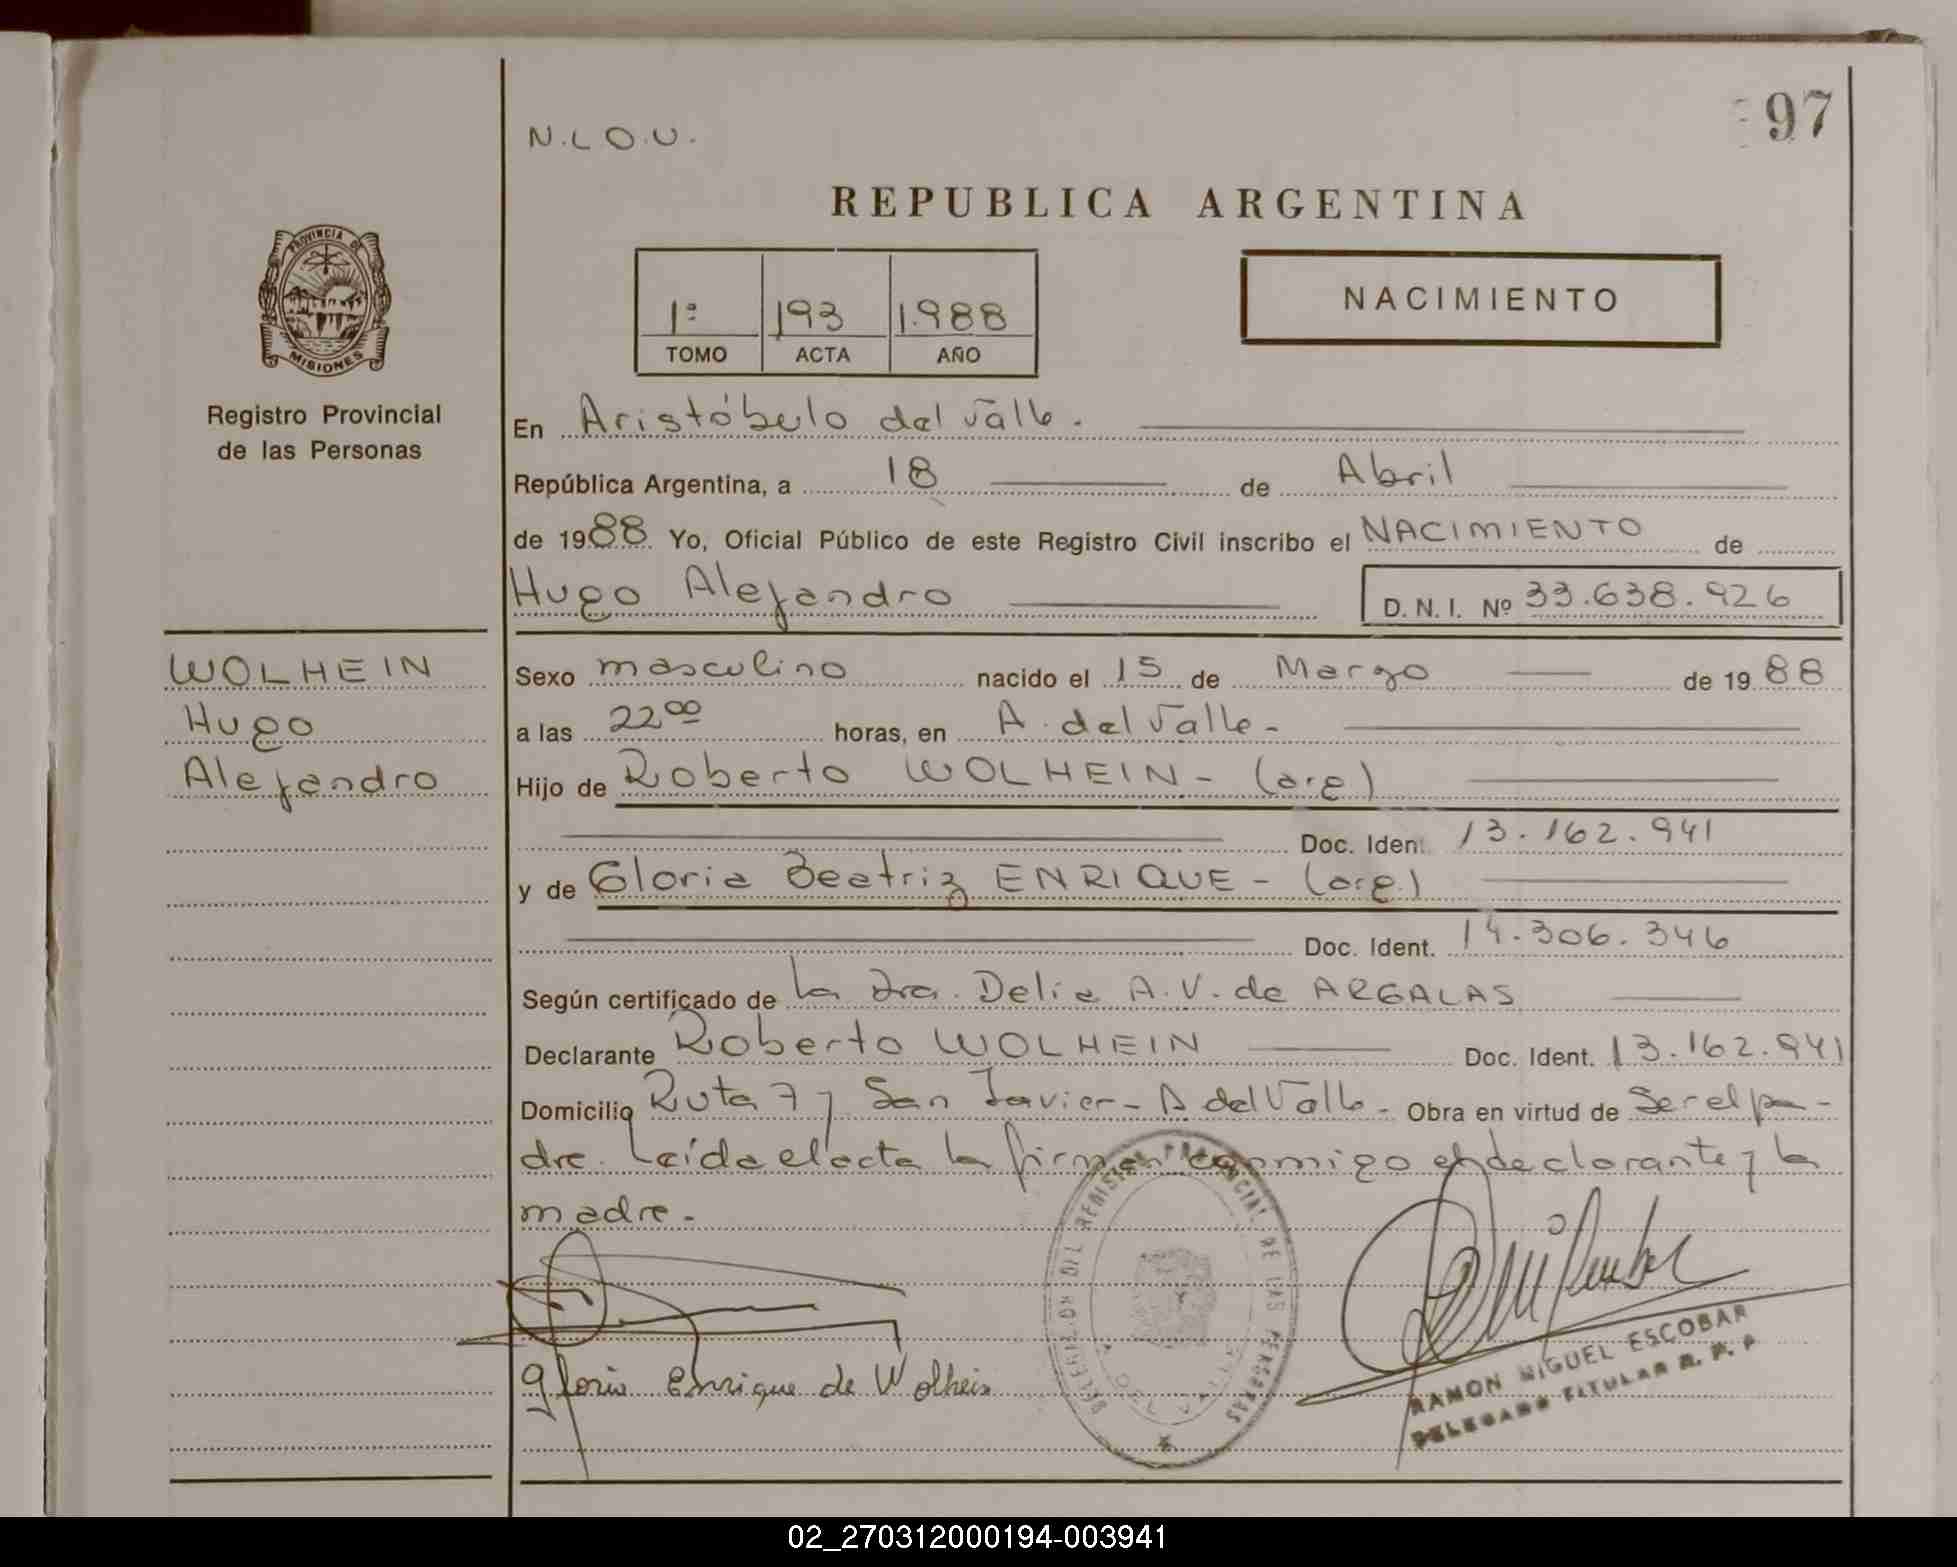 97
N.L.O.U.
REPUBLICA ARGENTINA
PROVINCIA DE
MISIONES
1º 193 1.988
TOMO ACTA AÑO
NACIMIENTO
Registro Provincial
de las Personas
En Aristóbulo del Valle.
República Argentina, a 18 de Abril
de 1988 Yo, Oficial Público de este Registro Civil inscribo el NACIMIENTO de
Hugo Alejandro D. N. I. Nº 33.638.926
WOLHEIN
Hugo
Alejandro
Sexo masculino nacido el 15 de Marzo de 1988
a las 22⁰⁰ horas, en A. del Valle-
Hijo de Roberto WOLHEIN- (arg)
Doc. Ident. 13.162.941
y de Gloria Beatriz ENRIQUE- (arg.)
Doc. Ident. 14.306.346
Según certificado de la Dra. Delia A.V. de ARGALAS
Declarante Roberto WOLHEIN Doc. Ident. 13.162.941
Domicilio Ruta 7 y San Javier- A del Valle- Obra en virtud de Ser el pa-
dre. Leída el acta la firman conmigo el declarante y la
madre-
Gloria Enrique de Wolhein
DELEGACION DEL REGISTRO PROVINCIAL DE LAS PERSONAS
A. DEL VALLE
RAMON MIGUEL ESCOBAR
DELEGADO TITULAR R. P. P
02_270312000194-003941